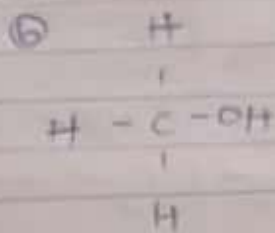 ⑥ H
|
H - C - OH
|
H